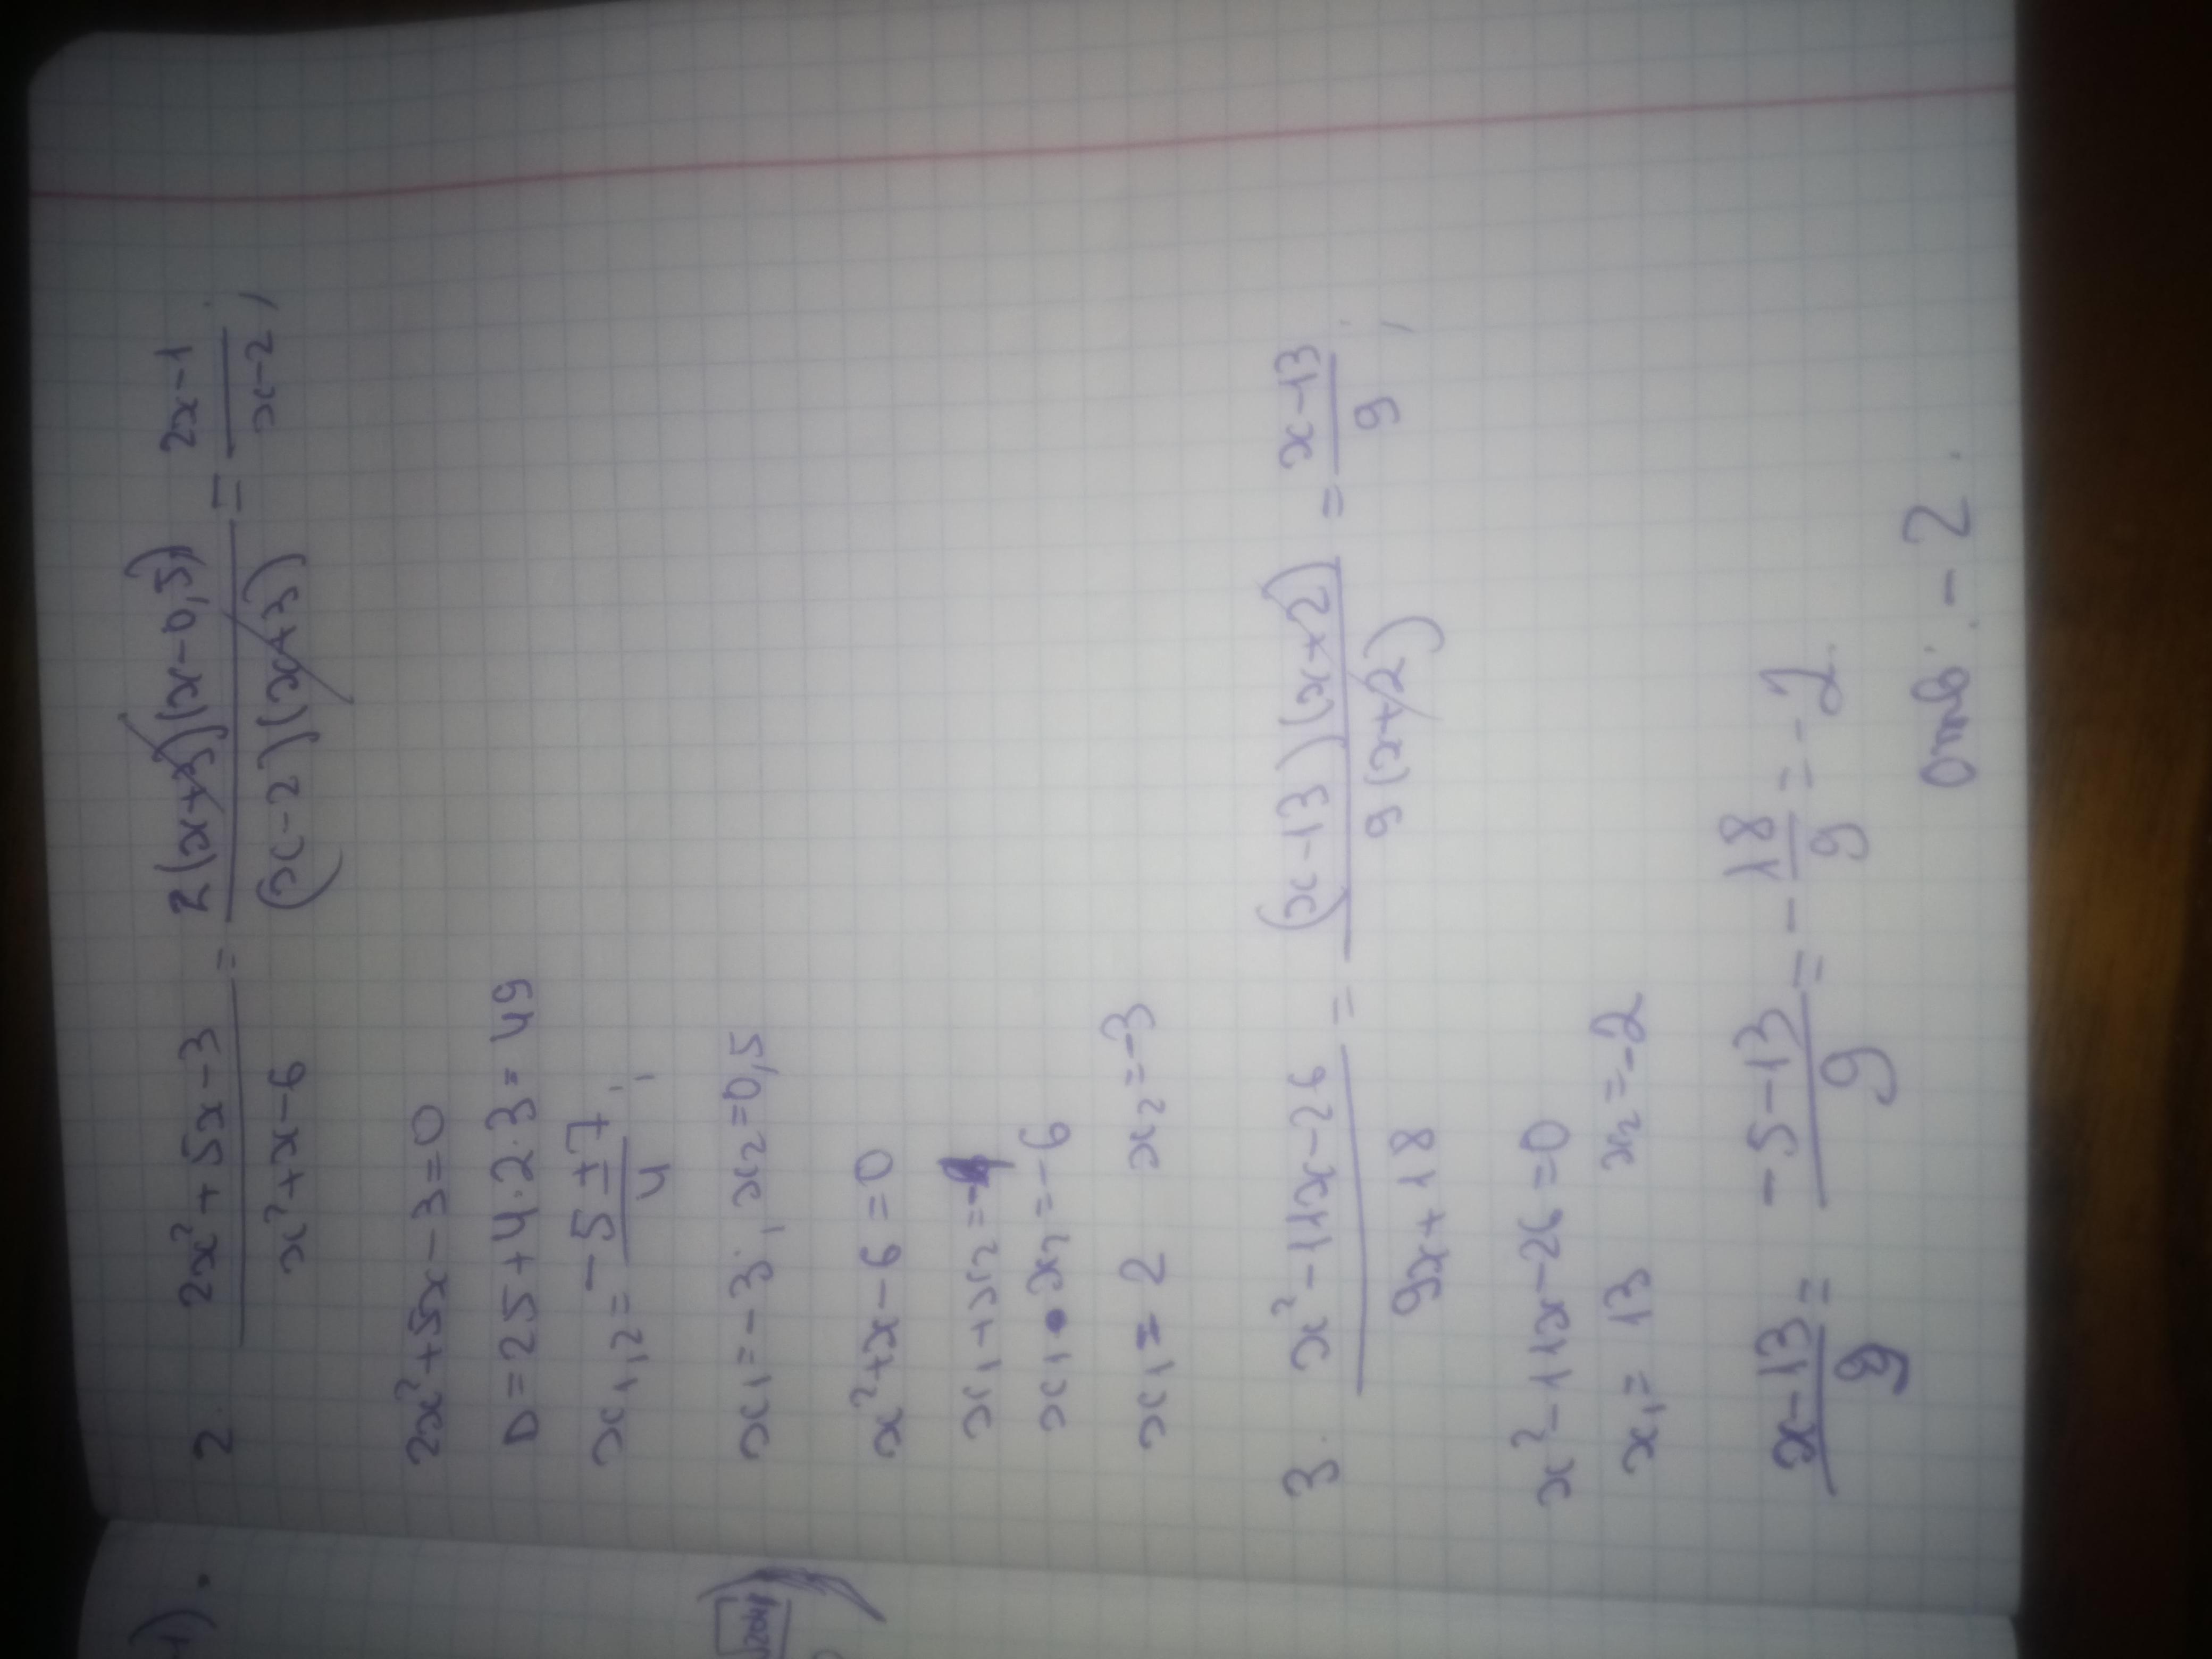 2. (2x² + 5x - 3)/(x² + x - 6) = 2(x+3)(x-0,5)/((x-2)(x+3)) = (2x-1)/(x-2);
2x² + 5x - 3 = 0
D = 25 + 4·2·3 = 49
x₁,₂ = (-5 ± 7)/4;
x₁ = -3; x₂ = 0,5
x² + x - 6 = 0
x₁ + x₂ = -1
x₁ • x₂ = -6
x₁ = 2 x₂ = -3
3. (x² - 11x - 26)/(9x + 18) = (x-13)(x+2)/(9(x+2)) = (x-13)/9;
x² - 11x - 26 = 0
x₁ = 13 x₂ = -2
(x-13)/9 = (-5-13)/9 = -18/9 = -2.
Отв: -2.